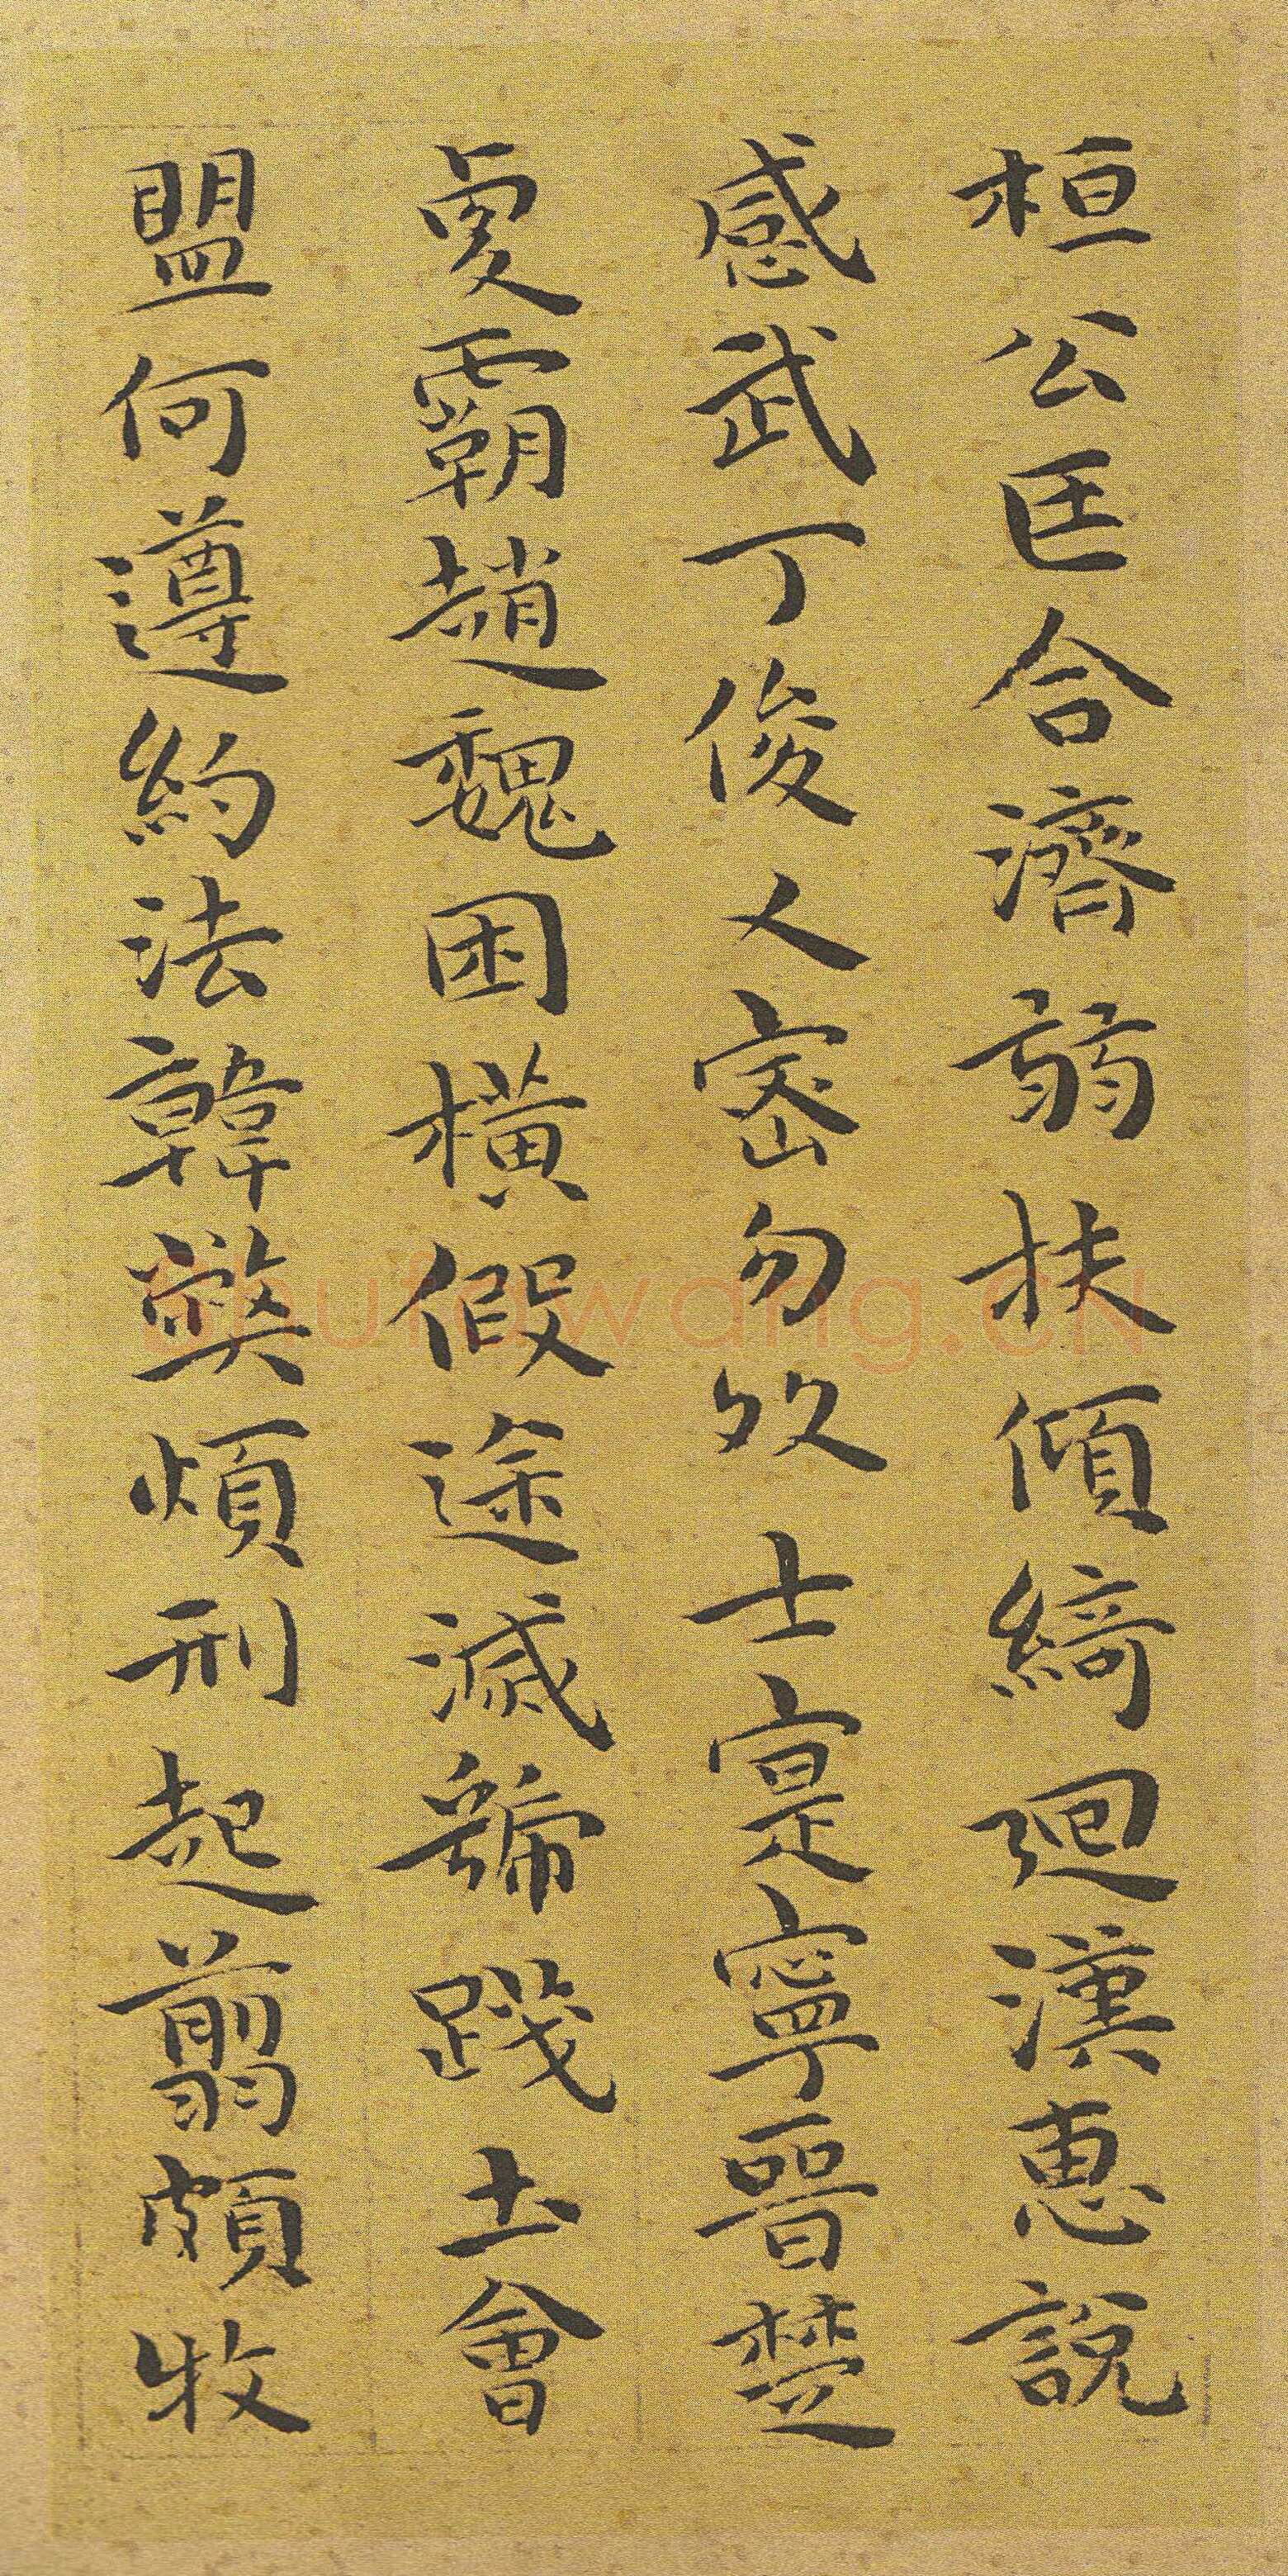 桓公匡合濟弱扶傾綺廻漢恵說
感武丁俊乂密勿多士寔寧晉楚
更霸趙魏困橫假途滅虢踐土會
盟何遵約法韓弊煩刑起翦頗牧
Shufawang.CN